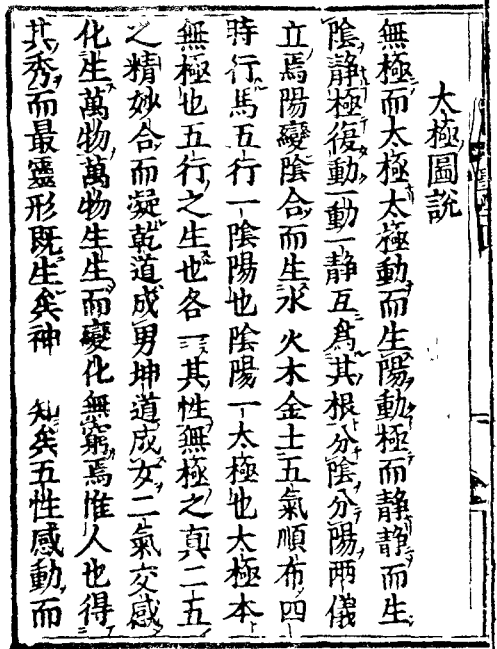 太極圖說
無極而太極太極動而生陽動極而靜靜而生
陰静極復動一動一静互爲其根分陰分陽兩儀
立焉陽變陰合而生水火木金土五氣順布四
時行焉五行一陰陽也陰陽一太極也太極本
無極也五行之生也各一其性無極之真二五
之精妙合而凝乾道成男坤道成女二氣交感
化生萬物萬物生生而變化無窮焉惟人也得
其秀而最靈形既生矣神 知矣五性感動而